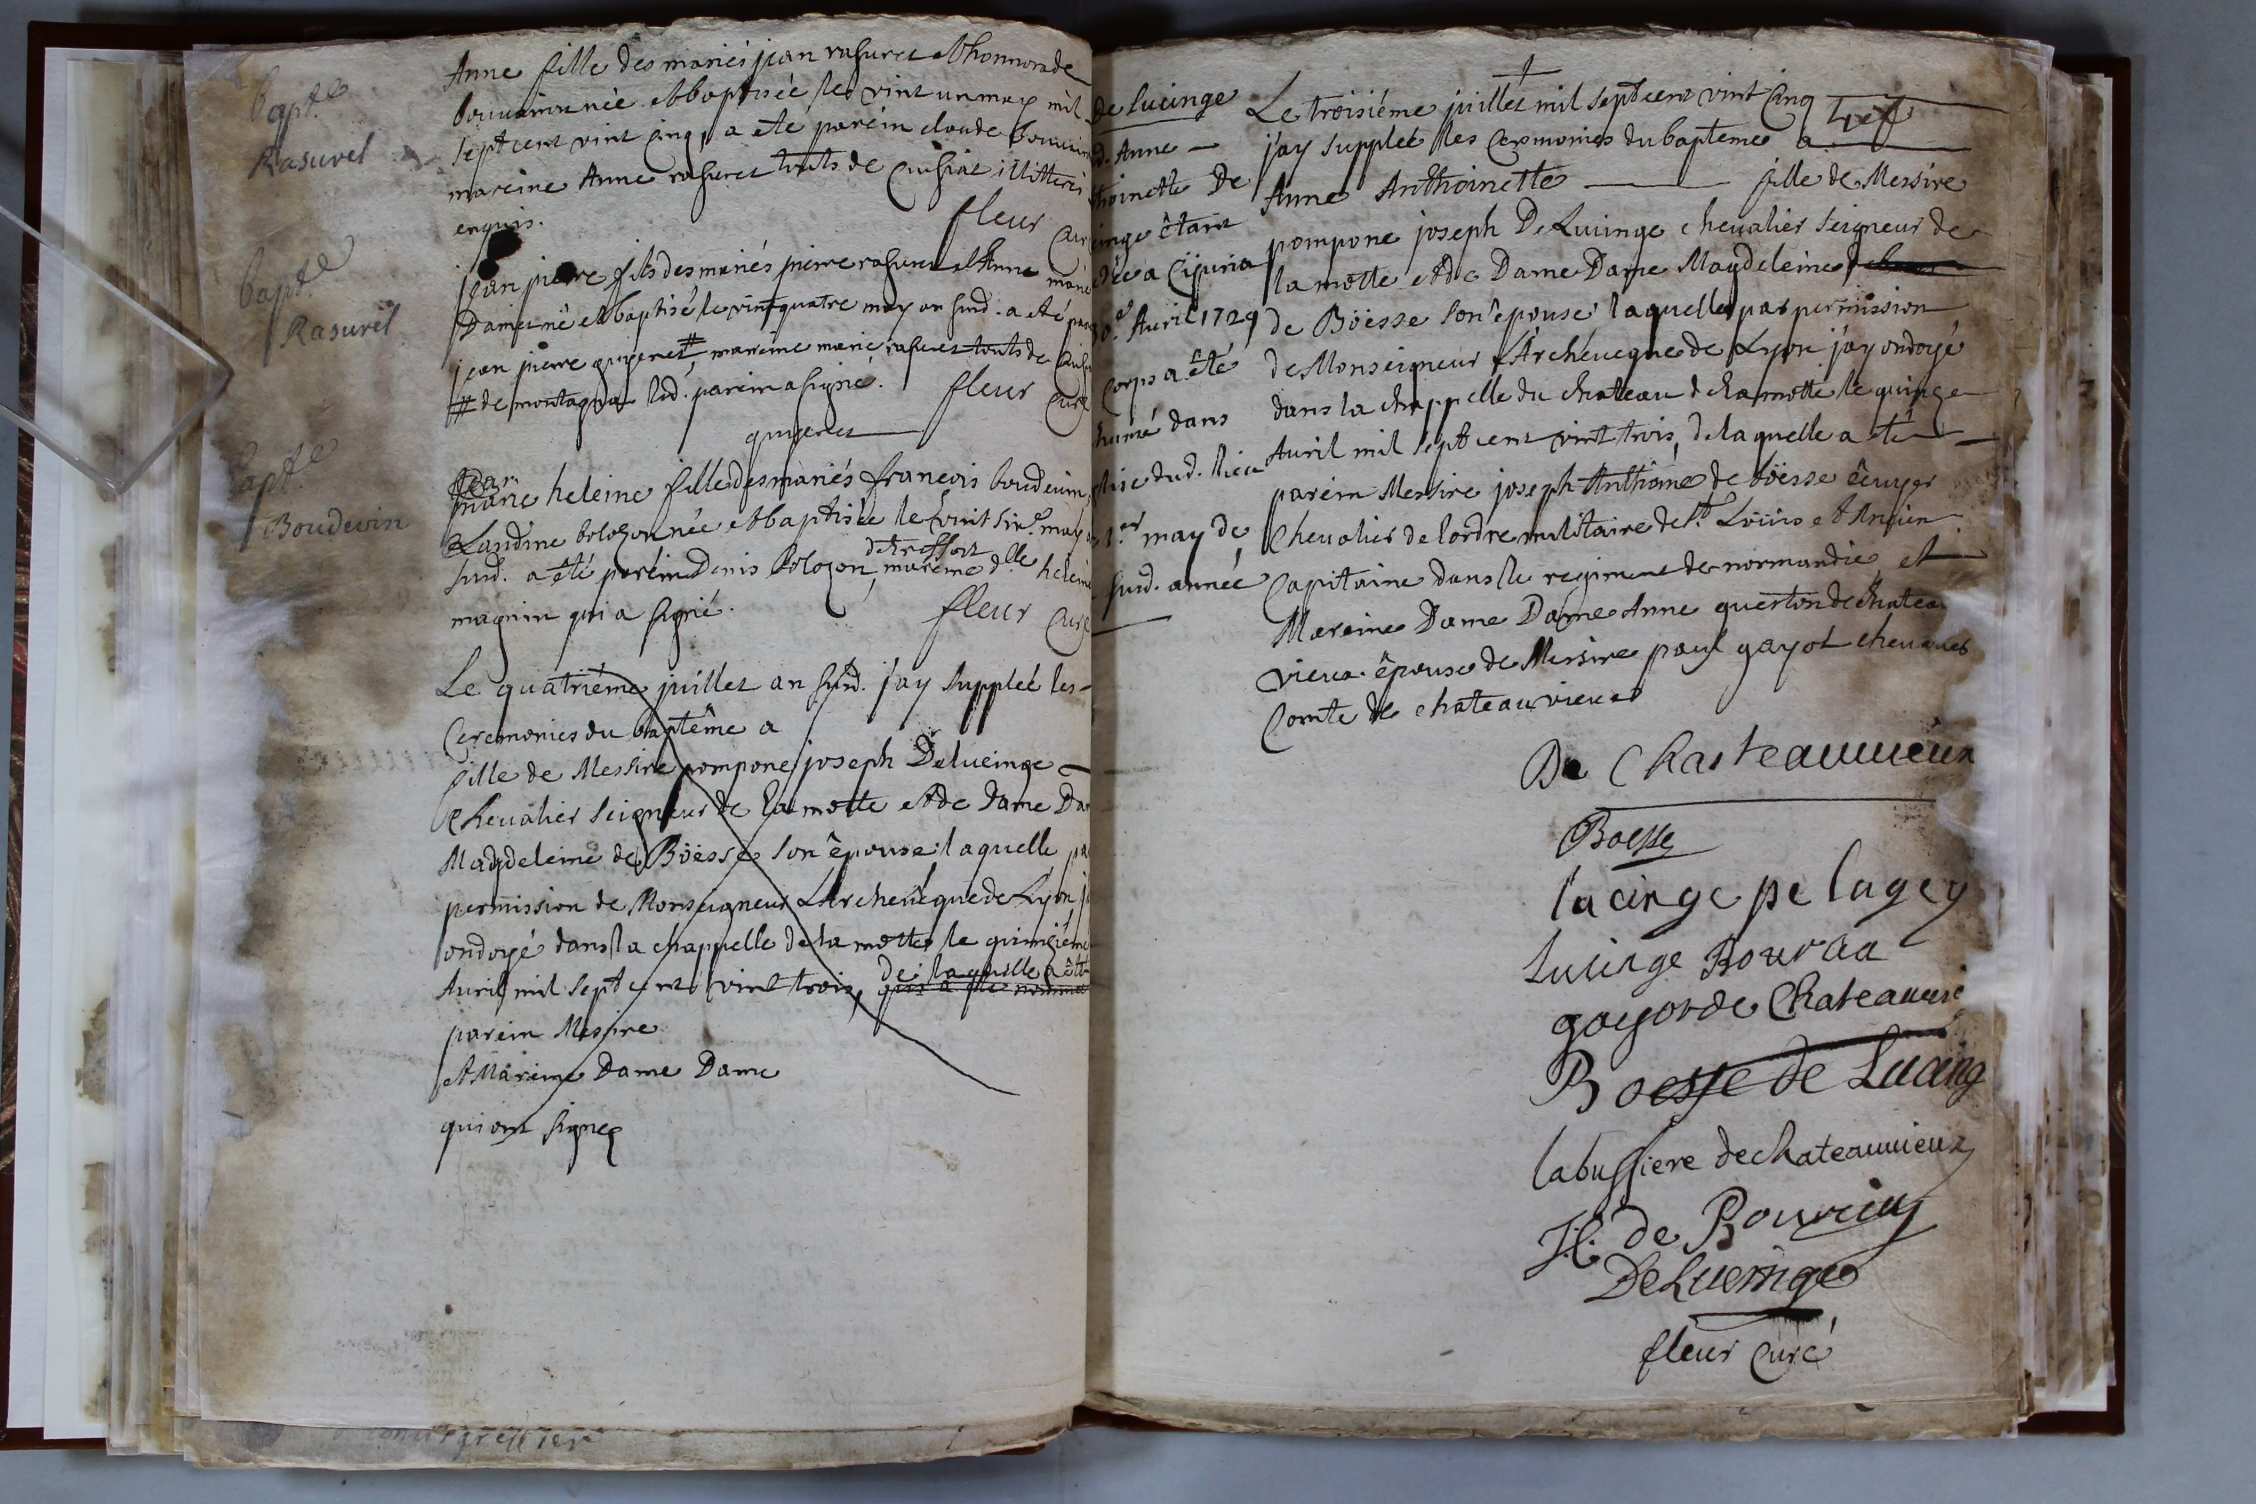 bapt.e
Rasurel
Anne fille des mariés jean rasurel et honnorade
bouvein née et baptisée le vint un may mil
sept cent vint cinq, a eté parein claude bouvein
mareine Anne rasurel touts de cuisiat illitterés
enquis.
fleur curé
bapt.e
Rasurel
jean pierre fils des mariés pierre rasurel et Anne marie
Damet né et baptisé le vint quatre may an susd. a eté parein
jean pierre guigenet # mareine marie rasurel touts de
# de montagna lad. parein a signé. fleur curé
guigenet
Bapt.e
Boudevin
marie heleine fille des mariés francois boudevin
et Landine bolozon née et baptisée le vint six.e may
susd. a eté parein Denis bolozon de treffort, mareine d.lle heleine
magnin qui a signé.
fleur curé
Le quatriéme juillet an susd. j'ay suppleé les
Ceremonies du baptême a
fille de Messire pompone joseph De lucinge
Chevalier seigneur de la motte et de Dame Dame
Magdeleine de Böesse son épouse laquelle par
permission de Monseigneur L'Archevêque de Lyon j'ay
ondoyé dans la chappelle de la motte le quinziéme
Avril mil sept cent vint trois, de laquelle a été
parein Messire
et Mareine Dame Dame
qui ont signez
de lucinge
d. Anne
thoinette De
inge étant
dée a Cijuria
Avril 1729
corps a été
humé dans
glise dud. lieu
1.er may de
susd. année
Le troisiéme juillet mil sept cent vint Cinq
j'ay suppleé les Ceremonies du baptême a
Anne Anthoinette fille de Messire
pompone joseph De Lucinge chevalier seigneur de
la motte et de Dame Dame Magdeleine
de Böesse son épouse laquelle par permission
de Monseigneur L'Archévêque de Lyon j'ay ondoyé
dans la chappelle du chateau de la motte le quinze
Avril mil sept cent vint trois, de laquelle a été
parein Messire joseph Anthoine de böesse êcuyer
Chevalier de l'ordre militaire de S.t Loüis et Ancien
Capitaine dans le regiment de normandie et
Mareine Dame Dame Anne guerton de chateau
vieux épouse de Messire paul gayot chevalier
Comte de chateauvieux
De Chasteauvieux
Boesse
lucinge pelagey
Lucinge
gayot de Chateauvie
Boesse de Lucing
labussiere de chateauvieux
De Lucinge
fleur Curé